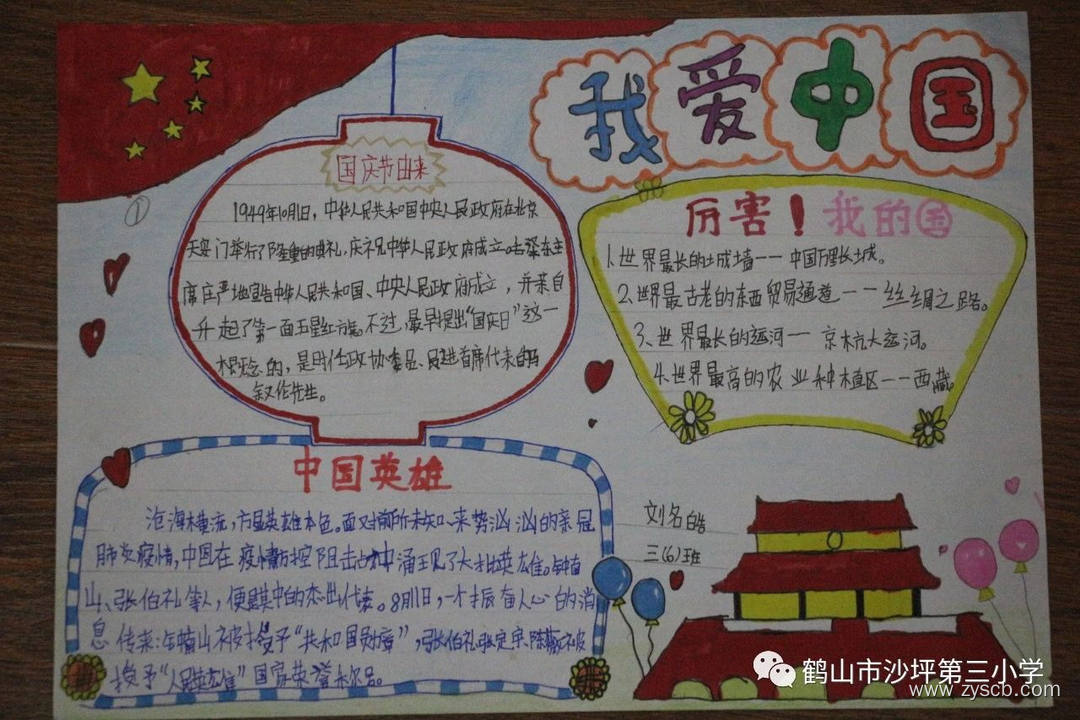 我爱中国
①
国庆节由来
1949年10月1日，中华人民共和国中央人民政府在北京
天安门举行了隆重的典礼，庆祝中华人民政府成立。毛泽东主
席庄严地宣告中华人民共和国、中央人民政府成立，并亲自
升起了第一面五星红旗。不过，最早提出“国庆日”这一
概念的，是时任政协委员、民进首席代表的马
叙伦先生。
厉害！我的国
1.世界最长的土城墙——中国万里长城。
2.世界最古老的东西贸易通道——丝绸之路。
3.世界最长的运河——京杭大运河。
4.世界最高的农业种植区——西藏。
中国英雄
沧海横流，方显英雄本色。面对前所未知、来势汹汹的新冠
肺炎疫情，中国在疫情防控阻击战中涌现了大批英雄。钟南
山、张伯礼等人，便是其中的杰出代表。8月11日，一个振奋人心的消
息传来：钟南山被授予“共和国勋章”，张伯礼张定宇陈薇被
授予“人民英雄”国家荣誉称号。
刘名皓
三(6)班
鹤山市沙坪第三小学
www.zyscb.com